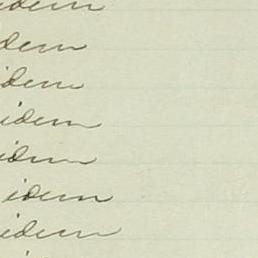 idem
idem
idem
idem
idem
idem
idem